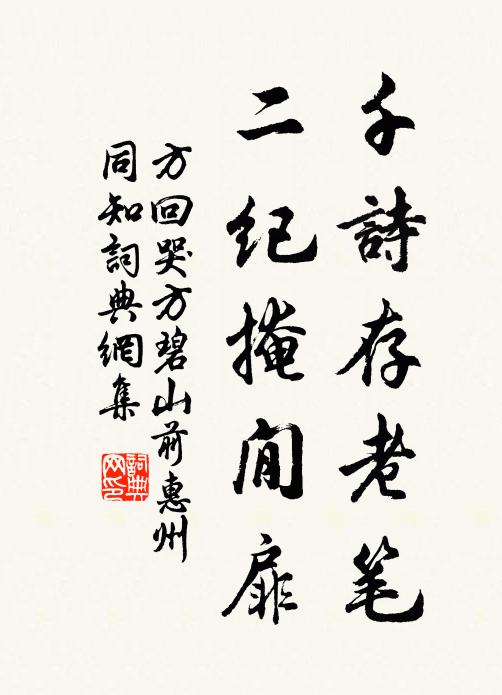 千詩存老笔
二纪掩閒扉
方回哭方碧山前惠州
同知詞典網集
詞典
网印